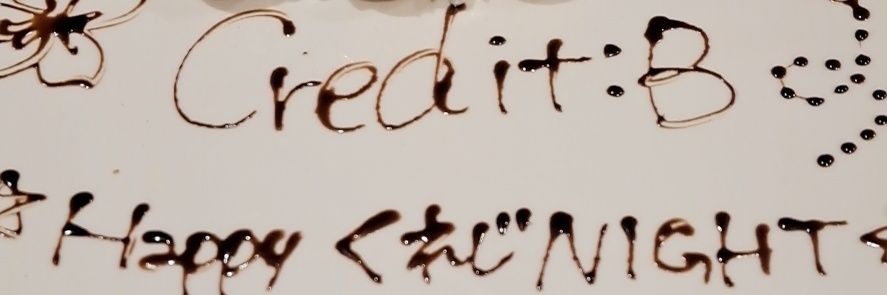 Credit:B
Happy くれじ NIGHT